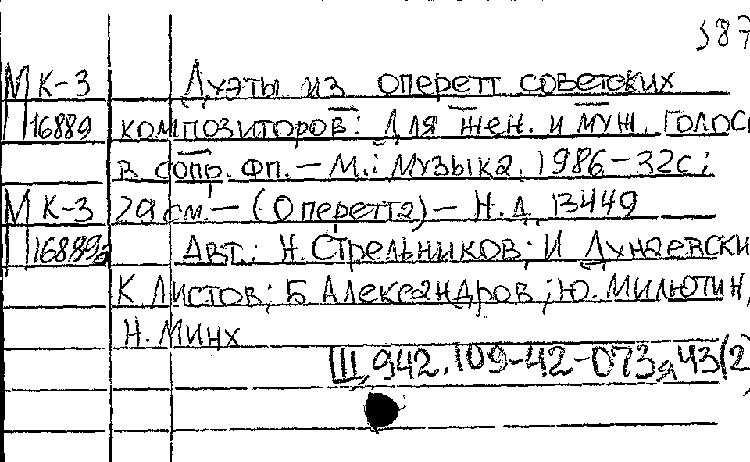 387
МК-3 Дуэты из оперетт советских
16889 композиторов: Для жен. и муж. голос
в сопр. фп. — М.: Музыка, 1986 — 32с;
МК-3 29см. — (Оперетта) — Н.д. 13449
16889а Авт.: Н. Стрельников; И Дунаевски
К Листов; Б Александров; Ю. Милютин,
Н. Минх
Щ 942.109-42-073я43(2)